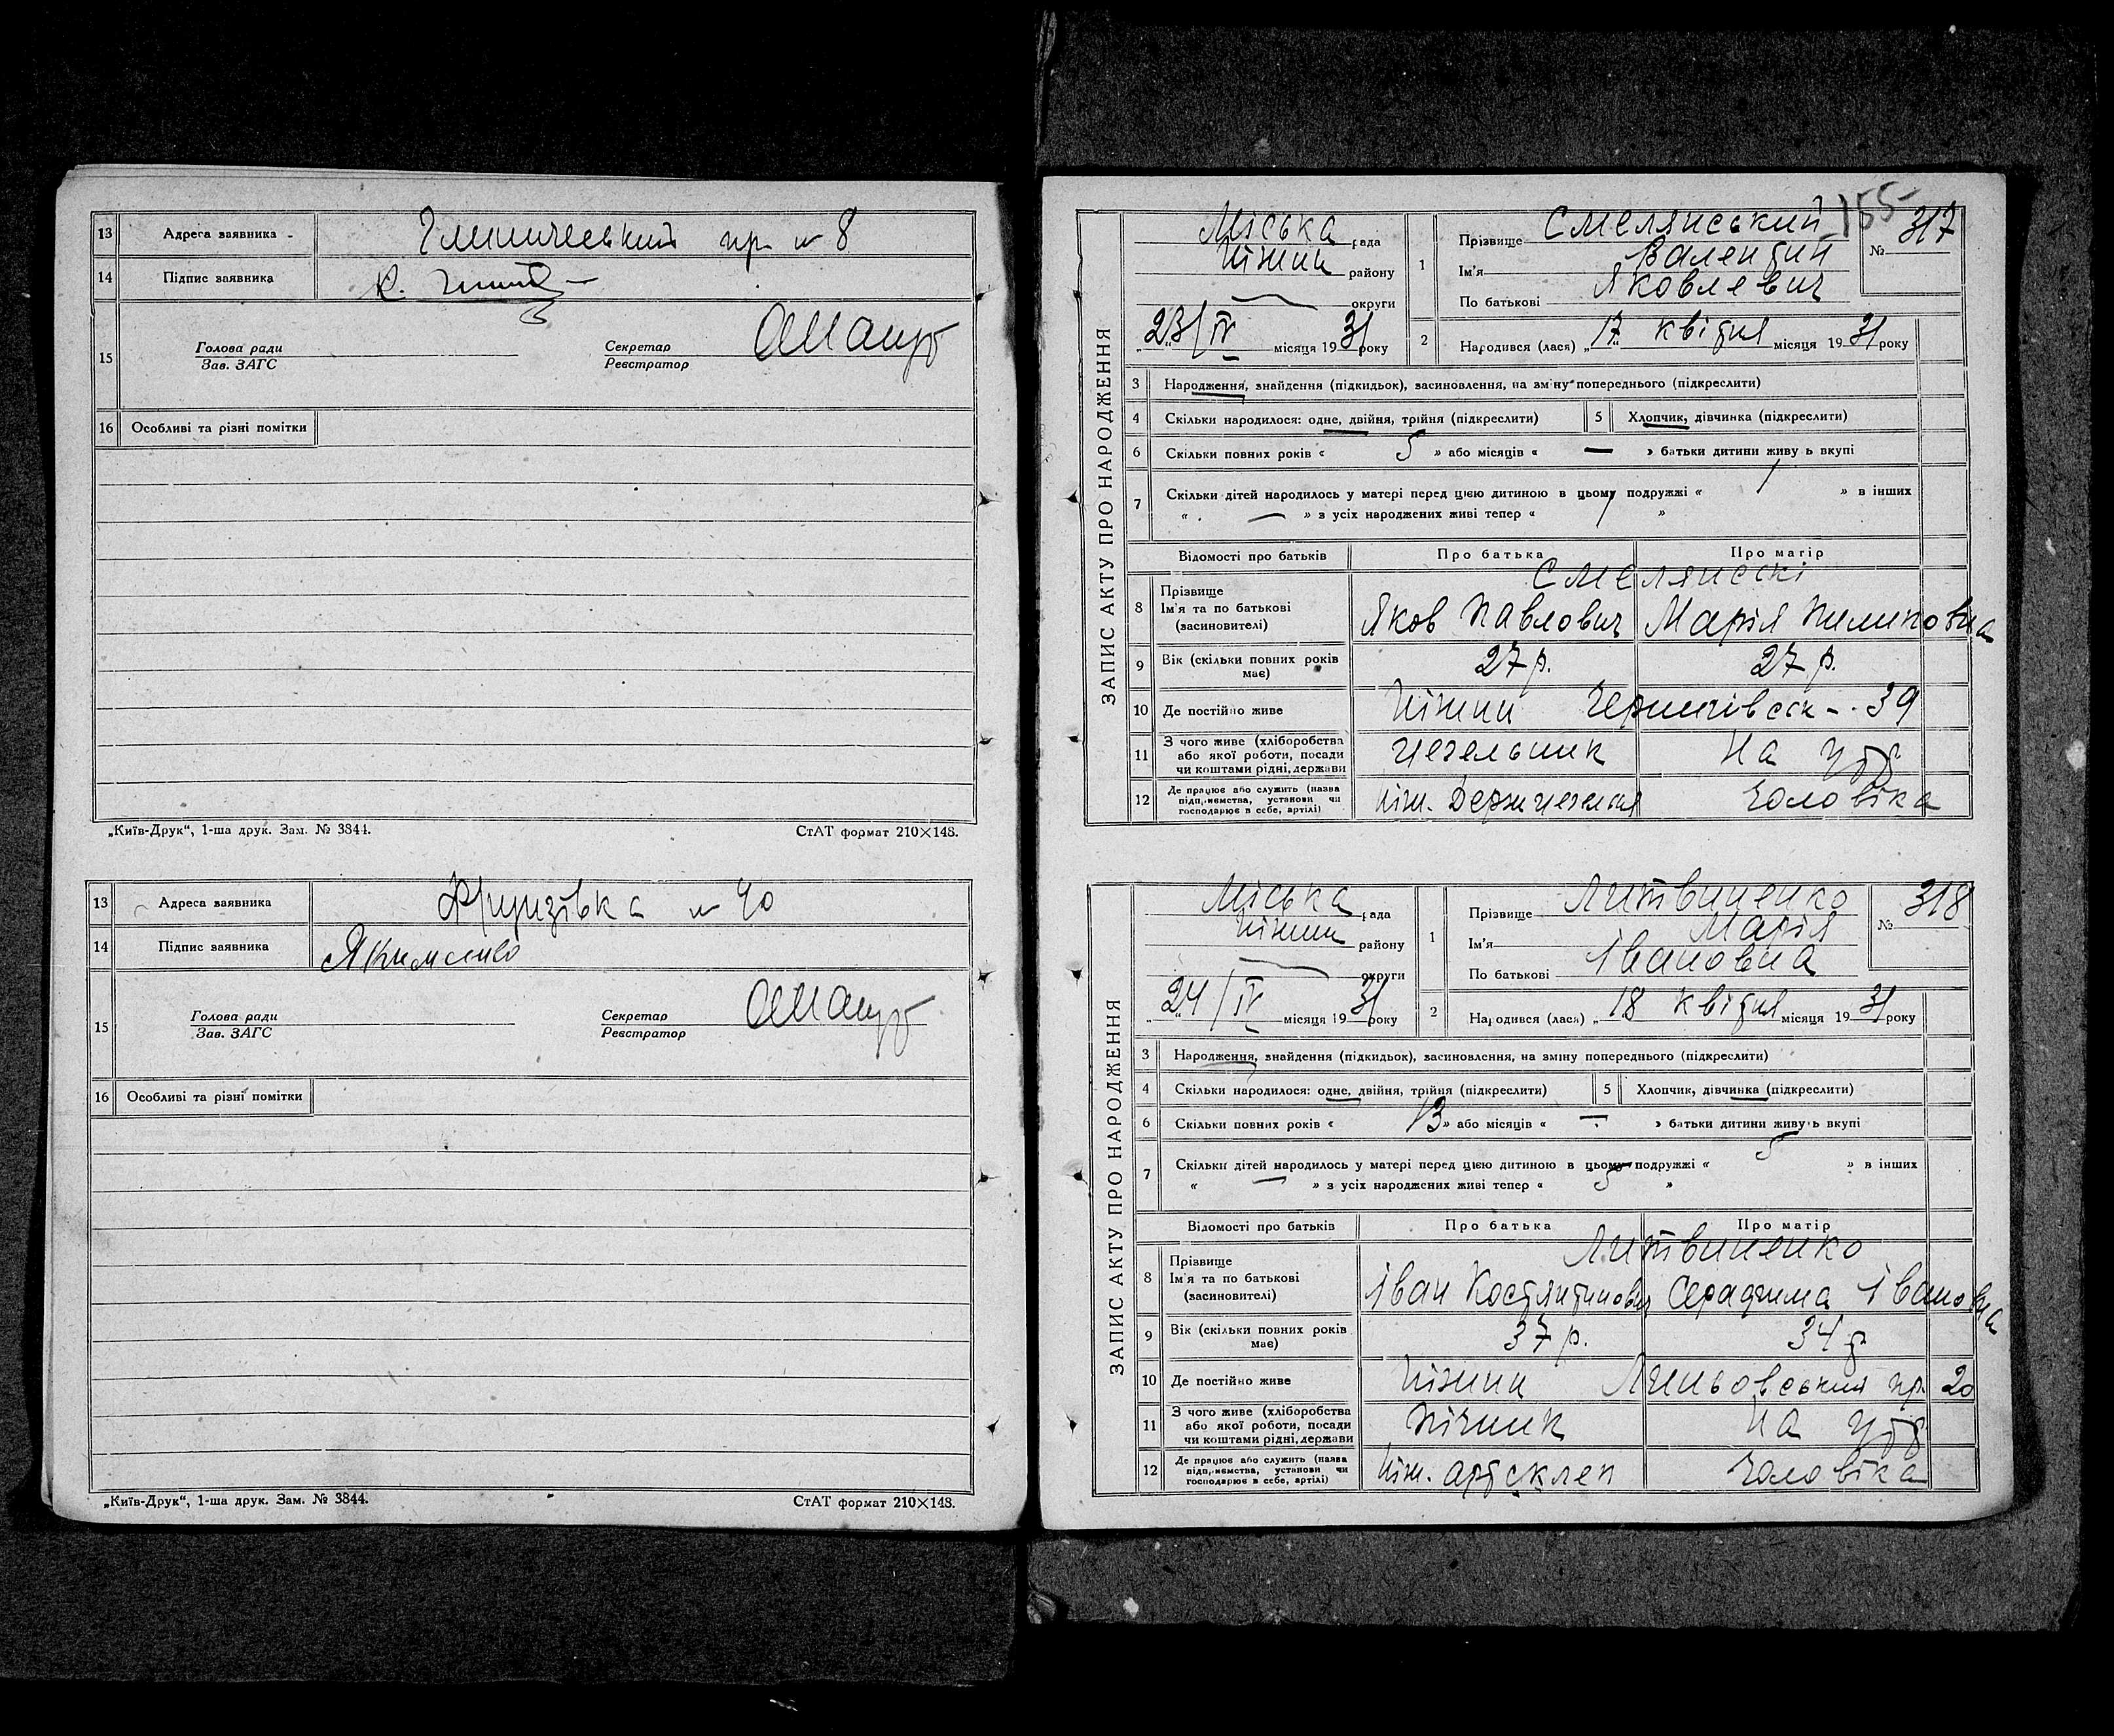 13 Адреса заявника пр. № 8
14 Підпис заявника К.
15 Голова ради Секретар
Зав. ЗАГС Реєстратор
16 Особливі та різні помітки
„Київ-Друк“, 1-ша друк. Зам. № 3844. СтАТ формат 210×148.
13 Адреса заявника Фрунзівка № 40
14 Підпис заявника Якименко
15 Голова ради Секретар
Зав. ЗАГС Реєстратор
16 Особливі та різні помітки
„Київ-Друк“, 1-ша друк. Зам. № 3844. СтАТ формат 210×148.
155
ЗАПИС АКТУ ПРО НАРОДЖЕННЯ
Міська рада
Ніжин району
округи
„23/IV місяця 1931 року
1 Прізвище Смелянський
Ім'я Валентин
По батькові Яковлевич
№ 317
2 Народився (лася) „17 квітня місяця 1931 року
3 Народження, знайдення (підкидьок), засиновлення, на зміну попереднього (підкреслити)
4 Скільки народилося: одне, двійня, трійня (підкреслити) 5 Хлопчик, дівчинка (підкреслити)
6 Скільки повних років « 5 » або місяців « — » батьки дитини живу ь вкупі
7 Скільки дітей народилось у матері перед цією дитиною в цьому подружжі « 1 » в інших
« — » з усіх народжених живі тепер « 1 »
Відомості про батьків Про батька Про матір
Смелянські
8 Прізвище
Ім'я та по батькові
(засиновителі)
Яков Павлович Марія Пилиповна
9 Вік (скільки повних років має) 27 р. 27 р.
10 Де постійно живе Ніжин Чернигівськ - 39
11 З чого живе (хліборобства
або якої роботи, посади
чи коштами рідні, держави
Чезельник На утр
12 Де працює або служить (назва
підприємства, установи чи
господарює в себе, артілі)
Ніж. чоловіка
ЗАПИС АКТУ ПРО НАРОДЖЕННЯ
Міська рада
Ніжин району
округи
„24/IV місяця 1931 року
1 Прізвище Литвиненко
Ім'я Марія
По батькові Івановна
№ 318
2 Народився (лася) „18 квітня місяця 1931 року
3 Народження, знайдення (підкидьок), засиновлення, на зміну попереднього (підкреслити)
4 Скільки народилося: одне, двійня, трійня (підкреслити) 5 Хлопчик, дівчинка (підкреслити)
6 Скільки повних років « 13 » або місяців « — » батьки дитини живу ь вкупі
7 Скільки дітей народилось у матері перед цією дитиною в цьому подружжі « 5 » в інших
« — » з усіх народжених живі тепер « 5 »
Відомості про батьків Про батька Про матір
Литвиненко
8 Прізвище
Ім'я та по батькові
(засиновителі)
Іван Костянтинович Серафима Івановна
9 Вік (скільки повних років має) 37 р. 34 р.
10 Де постійно живе Ніжин пр. 20
11 З чого живе (хліборобства
або якої роботи, посади
чи коштами рідні, держави
Пічник На утр
12 Де працює або служить (назва
підприємства, установи чи
господарює в себе, артілі)
Ніж. чоловіка